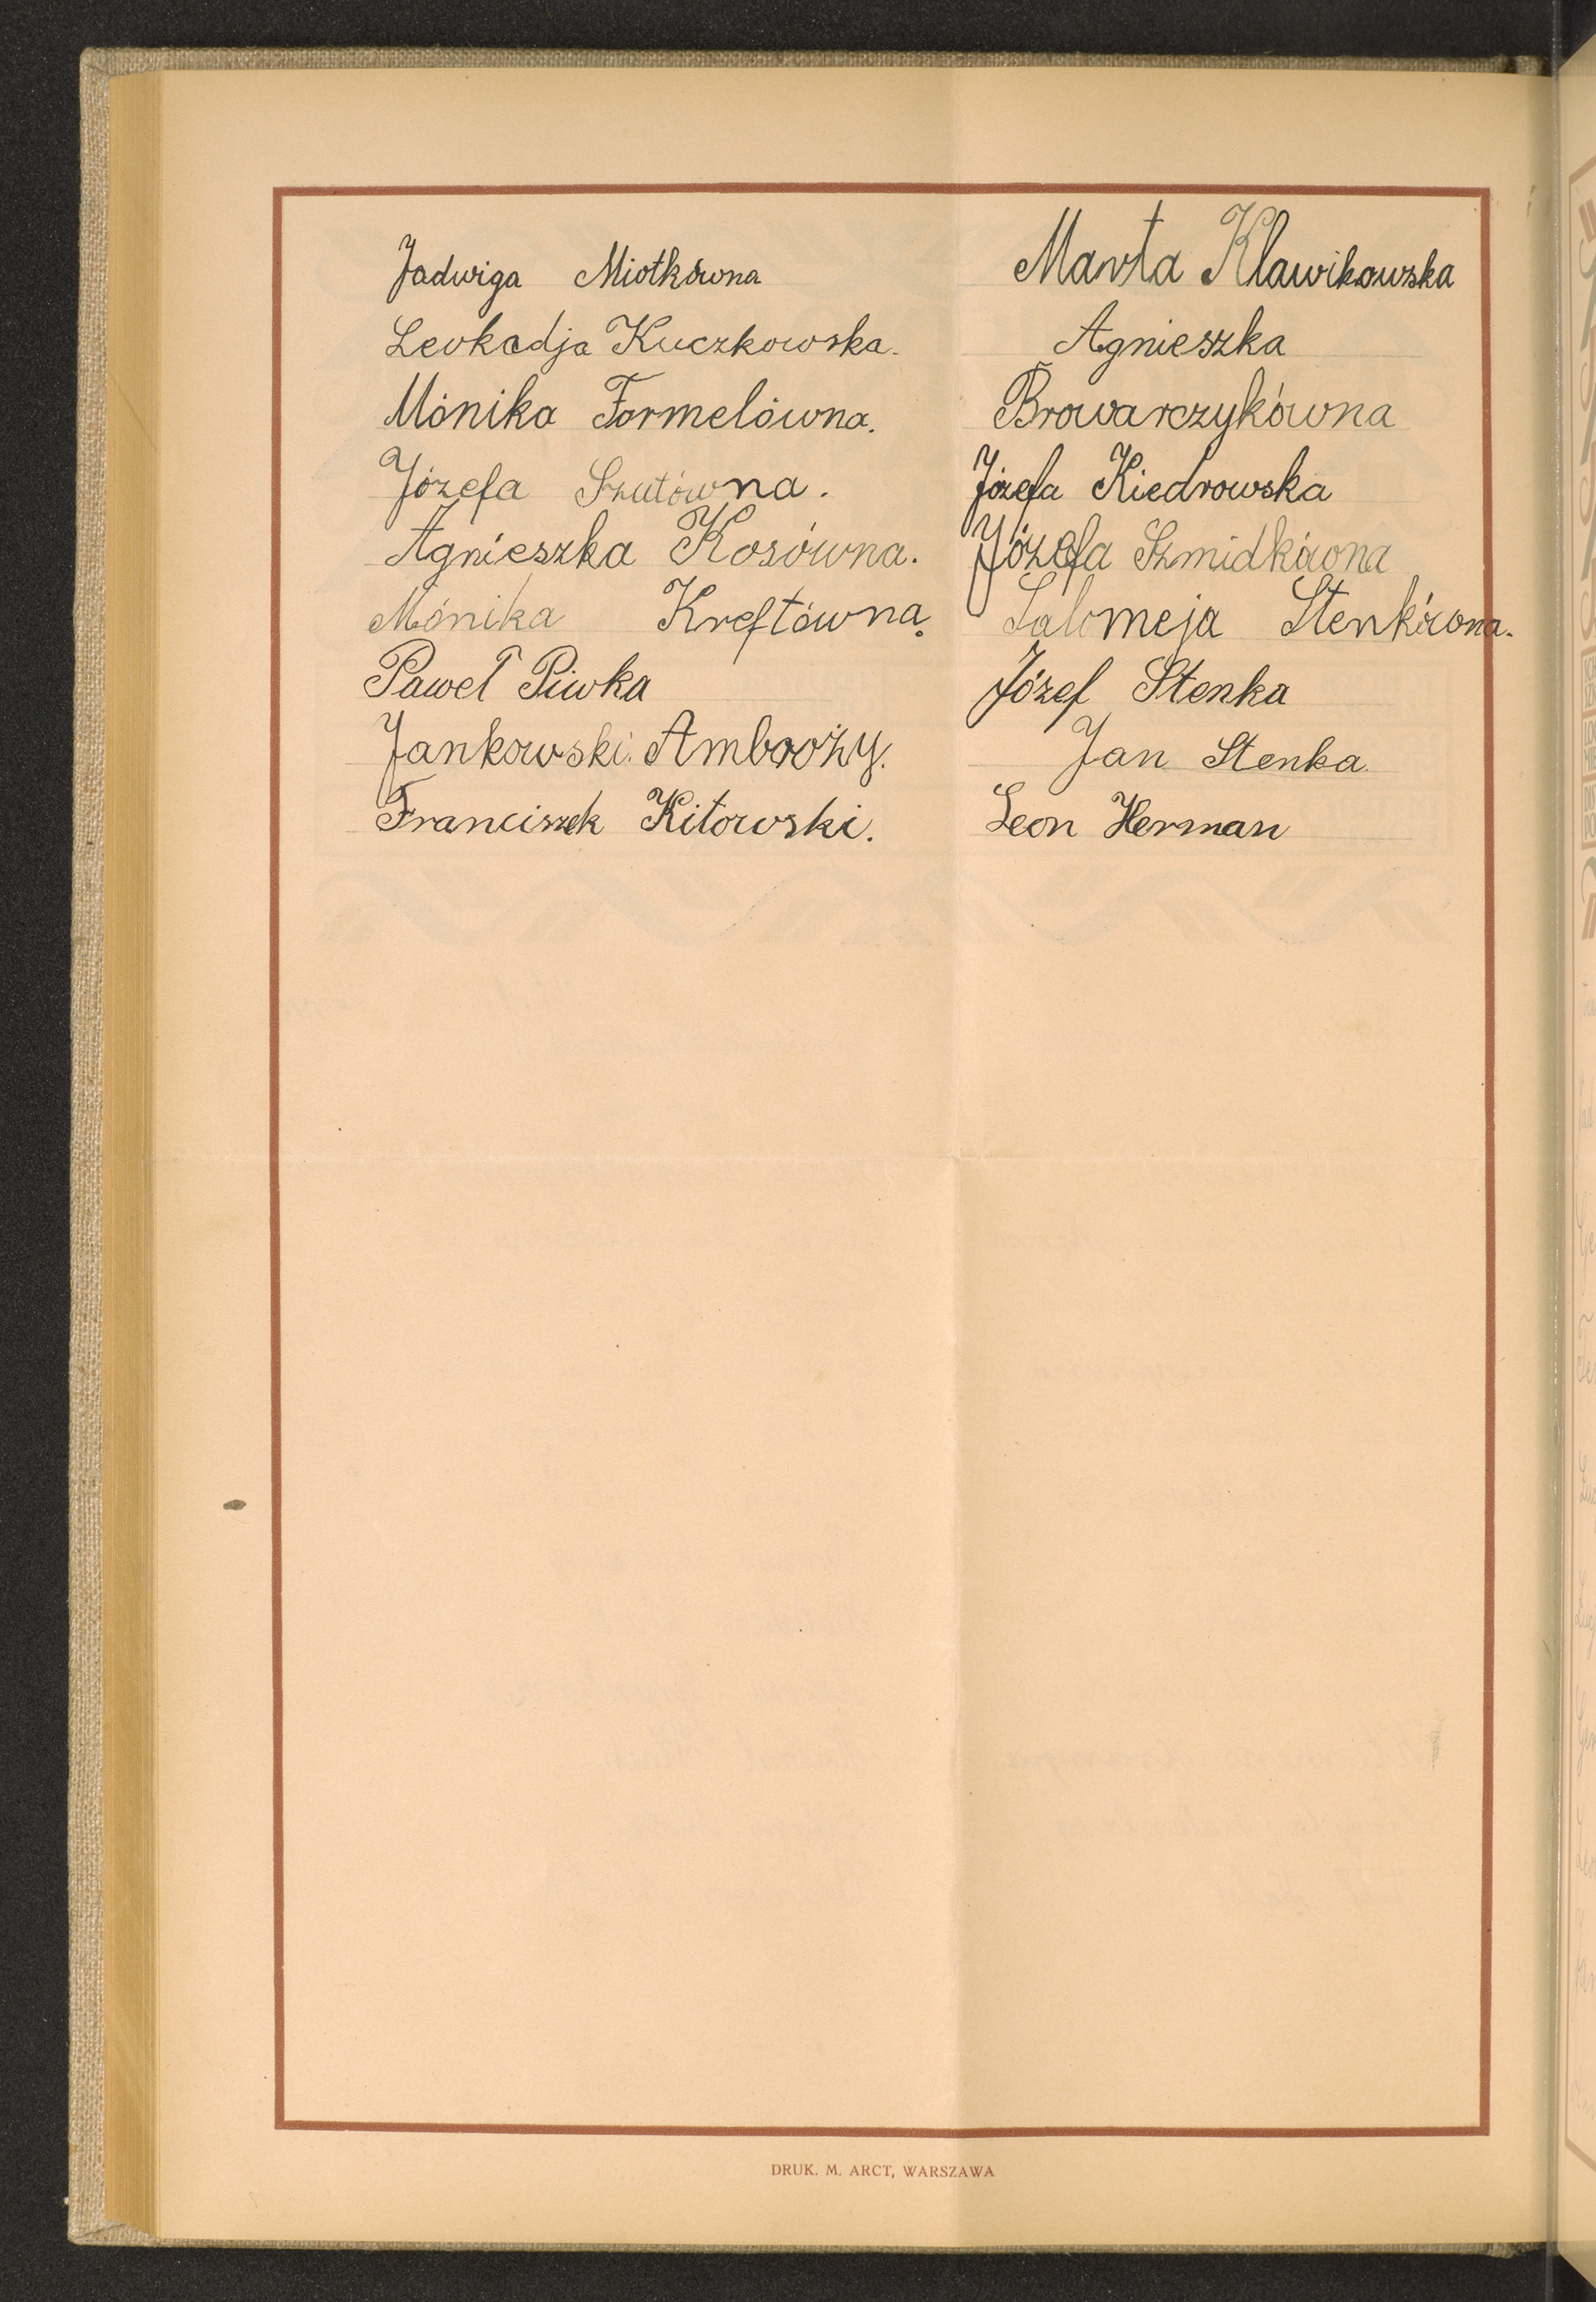 Jadwiga Miotkówna
Leokadja Kuczkowska.
Mónika Formelówna.
Józefa Szutówna.
Agnieszka Kosówna.
Mónika Kreftówna.
Paweł Piwka
Jankowski. Ambroży.
Franciszek Kitowski.
Marta Klawikowska
Agnieszka
Browarczykówna
Józefa Kiedrowska
Józefa Szmidkówna
Salomeja Stenkówna.
Józef Stenka
Jan Stenka.
Leon Herman
DRUK. M. ARCT, WARSZAWA